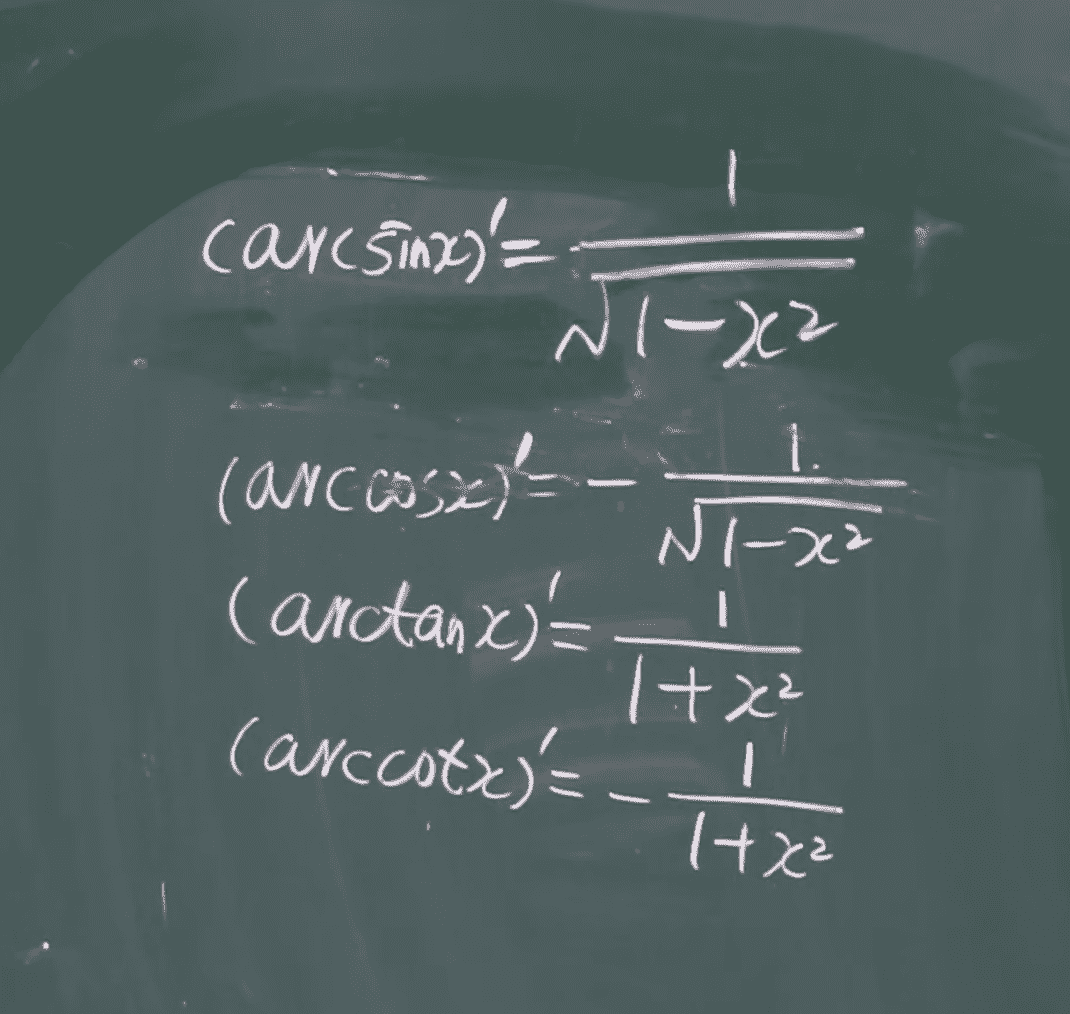 (arcsinx)′ = 1/√(1−x²)
(arccosx)′ = − 1/√(1−x²)
(arctanx)′ = 1/(1+x²)
(arccotx)′ = − 1/(1+x²)